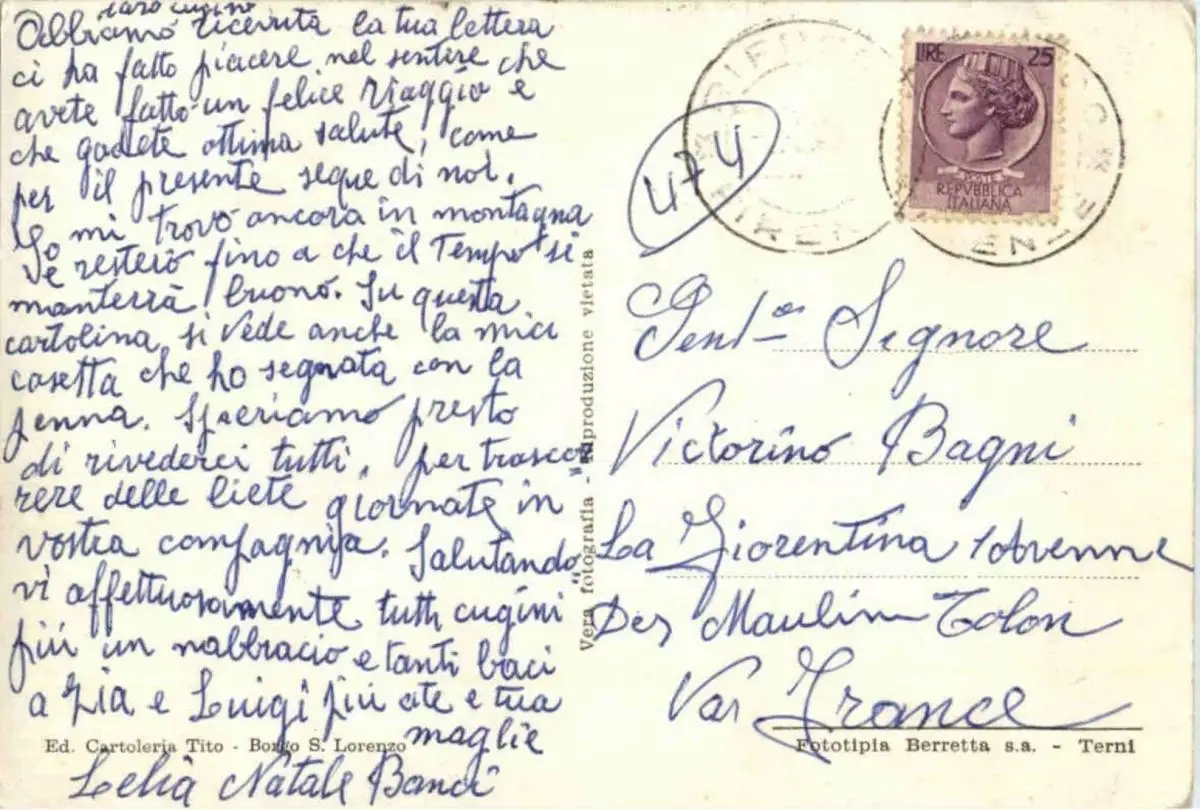 caro cugino
Abbiamo ricevuta la tua lettera
ci ha fatto piacere nel sentire che
avete fatto un felice viaggio e
che godete ottima salute, come
per il presente segue di noi.
Io mi trovo ancora in montagna
e resterò fino a che il Tempo si
manterrà buono. Su questa
cartolina si vede anche la mia
casetta che ho segnata con la
penna. Speriamo presto
di rivederci tutti, per trascor
rere delle liete giornate in
vostra compagnia. Salutando
vi affettuosamente tutti cugini
più un nabbracio e tanti baci
a zia e Luigi più ate e tua
maglie
Lelia Natale Banci
Ed. Cartoleria Tito - Borgo S. Lorenzo
"Vera fotografia" - Riproduzione vietata
474
LIRE 25
POSTE
REPVBBLICA
ITALIANA
Gent e Signore
Victorino Bagni
La Fiorentina
Des Maulin Tolon
Var France
Fototipia Berretta s.a. - Terni